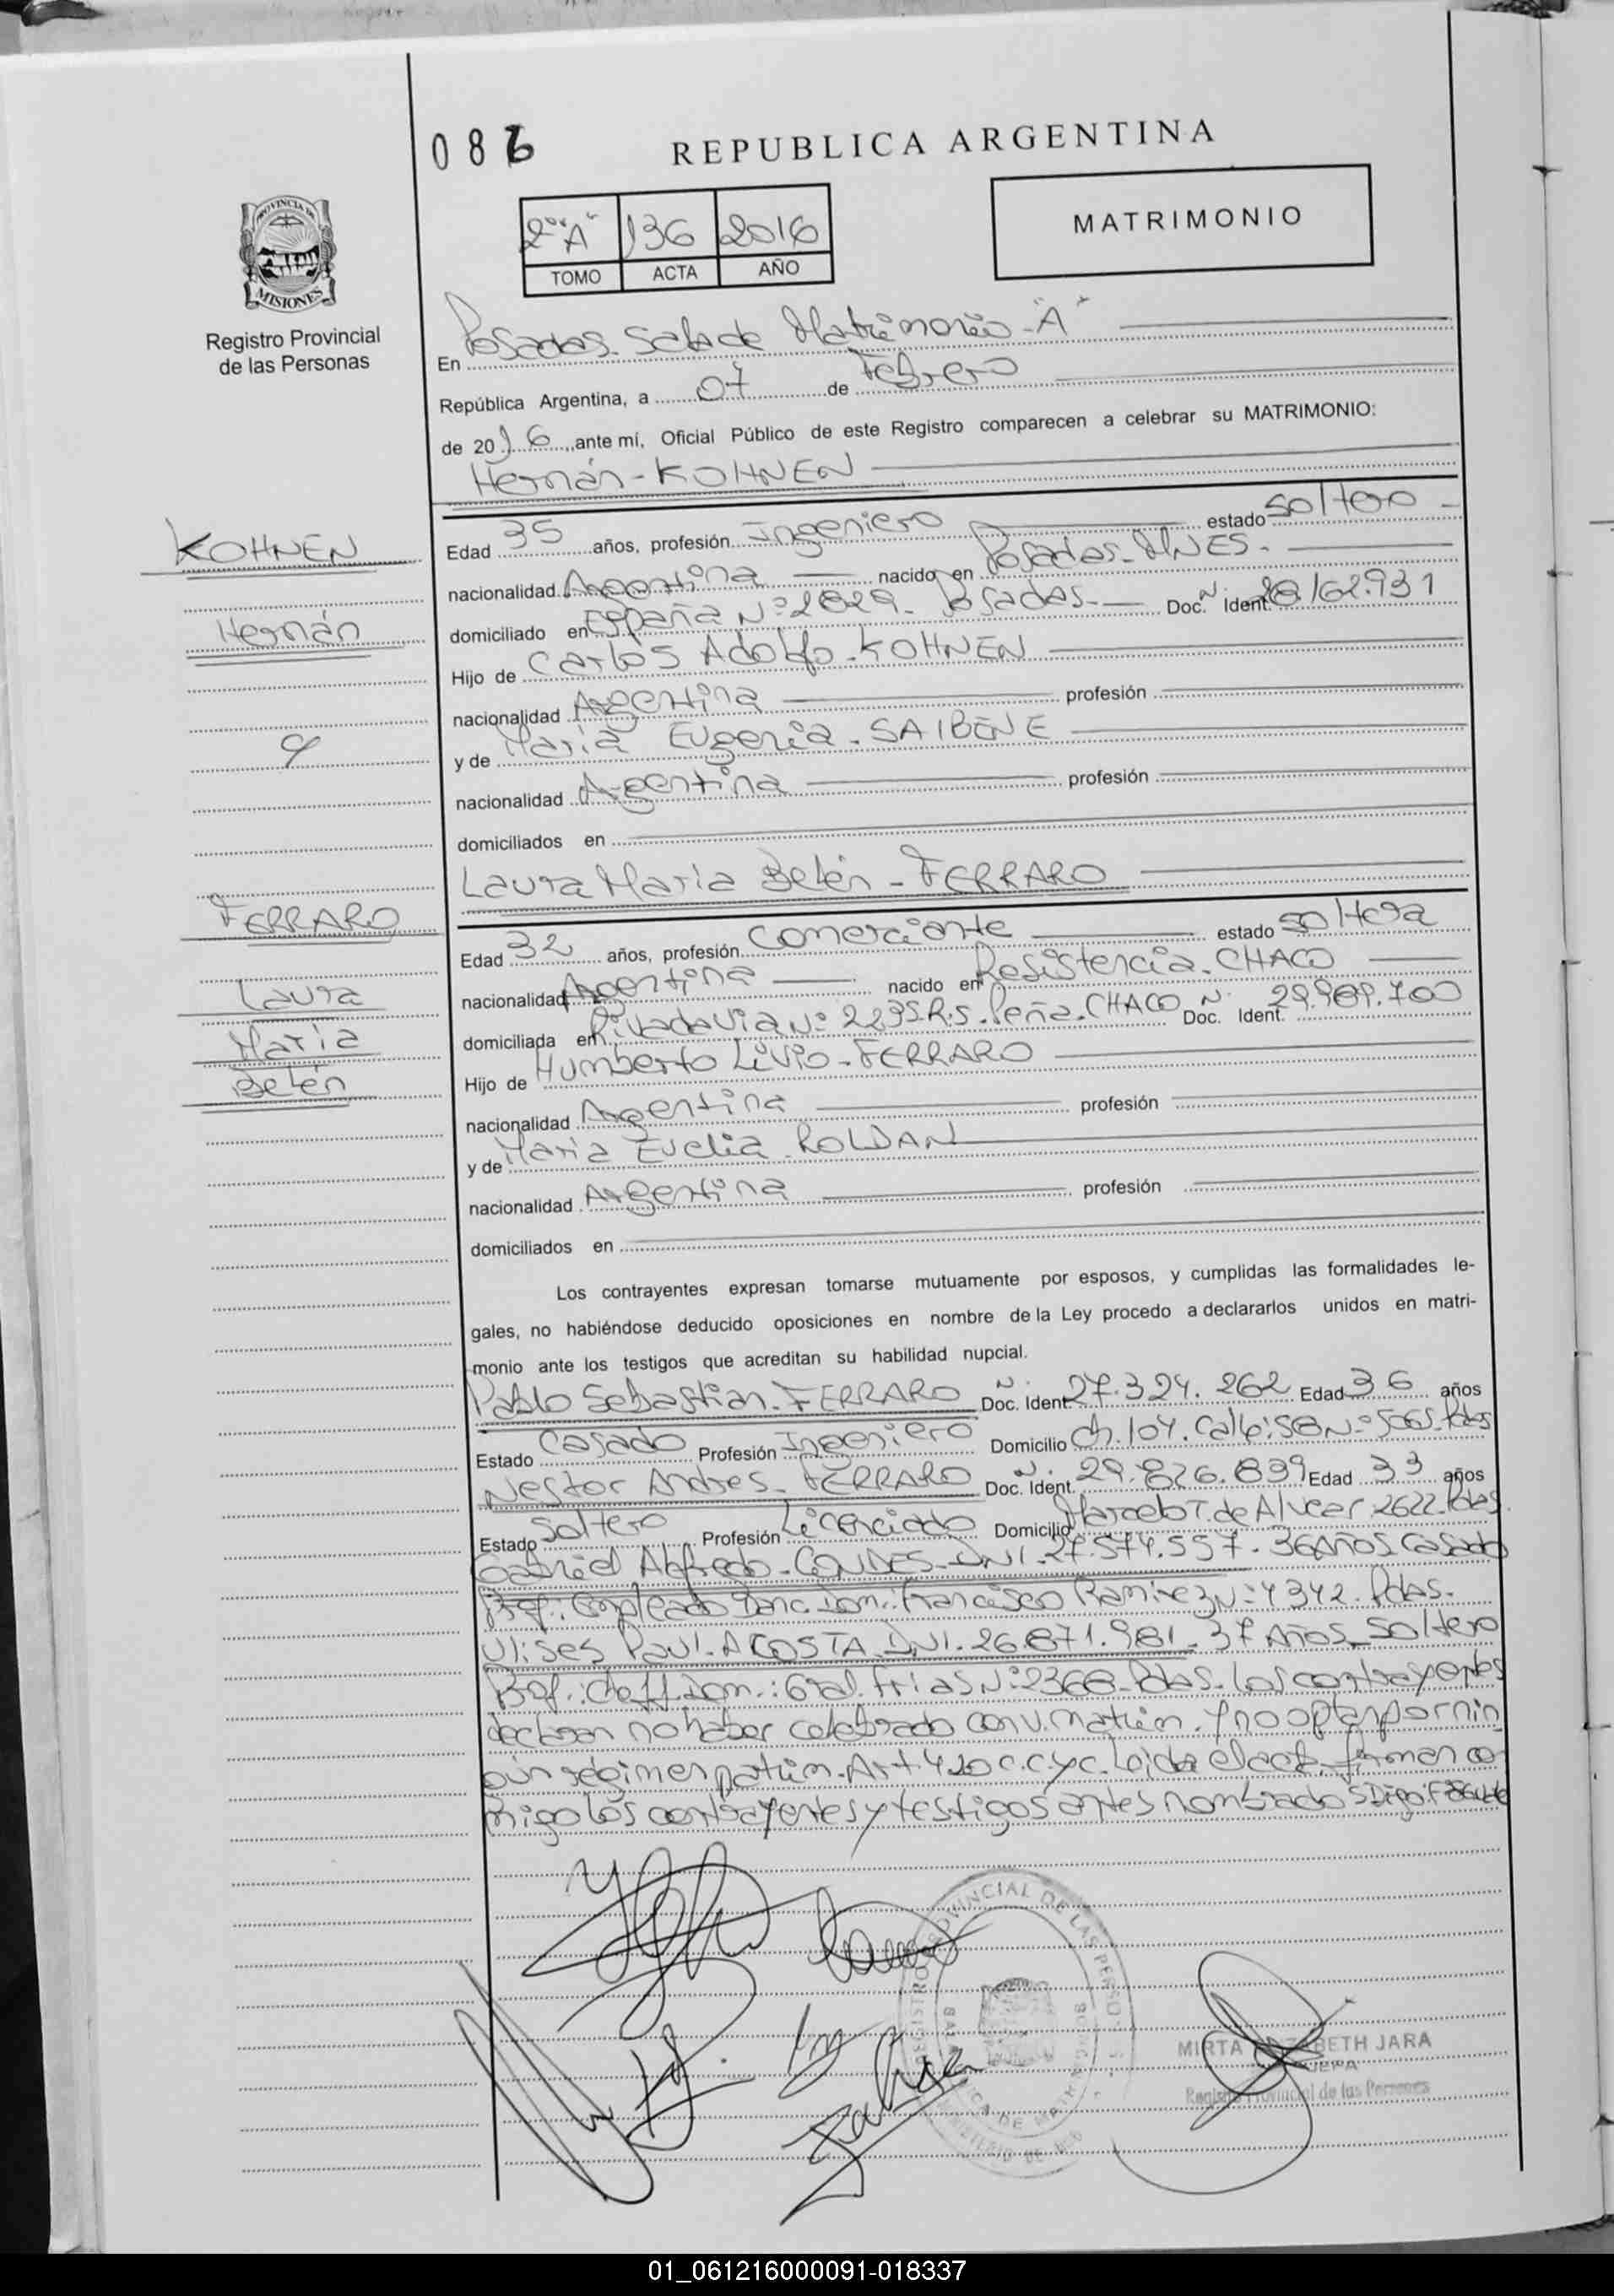 086
REPUBLICA ARGENTINA
MATRIMONIO
2º "A" 136 2016
TOMO ACTA AÑO
PROVINCIA DE
MISIONES
Registro Provincial
de las Personas
En Posadas. Sala de Matrimonio - "A"
República Argentina, a 07 de Febrero
de 2016, ante mí, Oficial Público de este Registro comparecen a celebrar su MATRIMONIO:
Hernán - KOHNEN
KOHNEN
Hernán
y
Edad 35 años, profesión Ingeniero estado soltero
nacionalidad Argentina nacido en Posadas - MNES.
domiciliado en España Nº 2829 - Posadas Doc. Ident. Nº 28.162.931
Hijo de Carlos Adolfo - KOHNEN
nacionalidad Argentina profesión
y de María Eugenia - SAIBENE
nacionalidad Argentina profesión
domiciliados en
Laura María Belén - FERRARO
FERRARO
Laura
María
Belén
Edad 32 años, profesión Comerciante estado soltera
nacionalidad Argentina nacido en Resistencia - CHACO
domiciliada en Rivadavia Nº 2295 R.S. Peña - CHACO Doc. Ident. Nº 29.969.700
Hijo de Humberto Livio - FERRARO
nacionalidad Argentina profesión
y de María Evelia - ROLDAN
nacionalidad Argentina profesión
domiciliados en
Los contrayentes expresan tomarse mutuamente por esposos, y cumplidas las formalidades le-
gales, no habiéndose deducido oposiciones en nombre de la Ley procedo a declararlos unidos en matri-
monio ante los testigos que acreditan su habilidad nupcial.
Pablo Sebastian - FERRARO Doc. Ident. Nº 27.324.262 Edad 36 años
Estado Casado Profesión Ingeniero Domicilio Ch. 104. Calle: 58 Nº 5065. Pdas
Nestor Andres - FERRARO Doc. Ident. Nº 29.826.839 Edad 33 años
Estado Soltero Profesión Licenciado Domicilio Marcelo T. de Alvear 2622. Pdas.
Gabriel Alfredo - CONDES - DNI. 27.574.557 - 36 Años Casado
Prof.: Empleado Banc Dom.: Francisco Ramirez Nº 4342. Pdas.
Ulises Paul - ACOSTA DNI. 26.871.981 - 37 Años - Soltero
Prof.: Cheff Dom.: Gral. Frias Nº 2368 - Pdas - Los contrayentes
declaran no haber celebrado conv. matrim. y no optan por nin
gún regimen patrim. Art 420 C.C.yC. Leida el acta, firman co
migo los contrayentes y testigos antes nombrados
REGISTRO PROVINCIAL DE LAS PERSONAS
MIRTA ELIZABETH JARA
Registro Provincial de las Personas
01_061216000091-018337